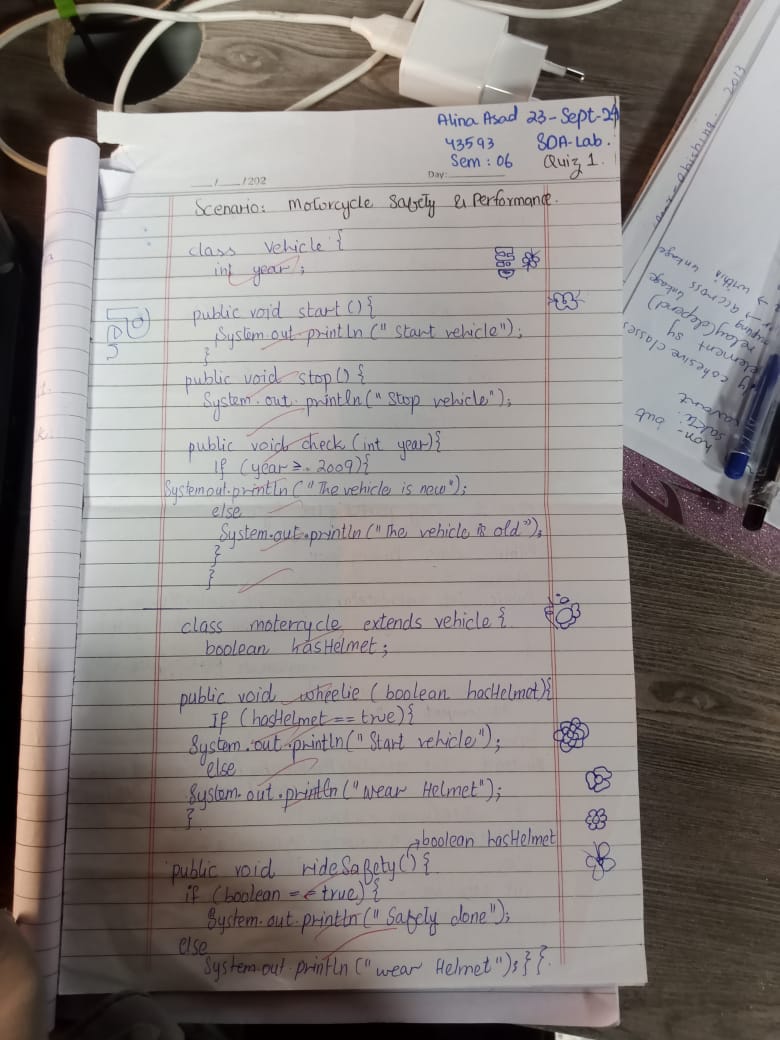 Alina Asad 23-Sept-24
43593 SDA-Lab.
Sem : 06 Quiz 1.
__/__/202 Day:
Scenario: Motorcycle Safety & Performance.
class Vehicle {
int year ;
public void start () {
System.out.println (" Start vehicle");
}
public void stop() {
System.out.println(" Stop vehicle");
public void check (int year){
If (year >= 2009){
System.out.println ("The vehicle is new");
else
System.out.println ("The vehicle is old");
}
}
class motercycle extends vehicle {
boolean hasHelmet ;
public void wheelie ( boolean hasHelmet){
If (hasHelmet == true){
System.out.println(" Start vehicle");
else
System.out.println ("wear Helmet");
}
boolean hasHelmet
public void rideSafety() {
if (boolean == true) {
System.out.println (" Safety done");
else
System.out.println ("wear Helmet"); } }.
2013
within
accross linkage
relay(depend)
element sy
by cohesive classes